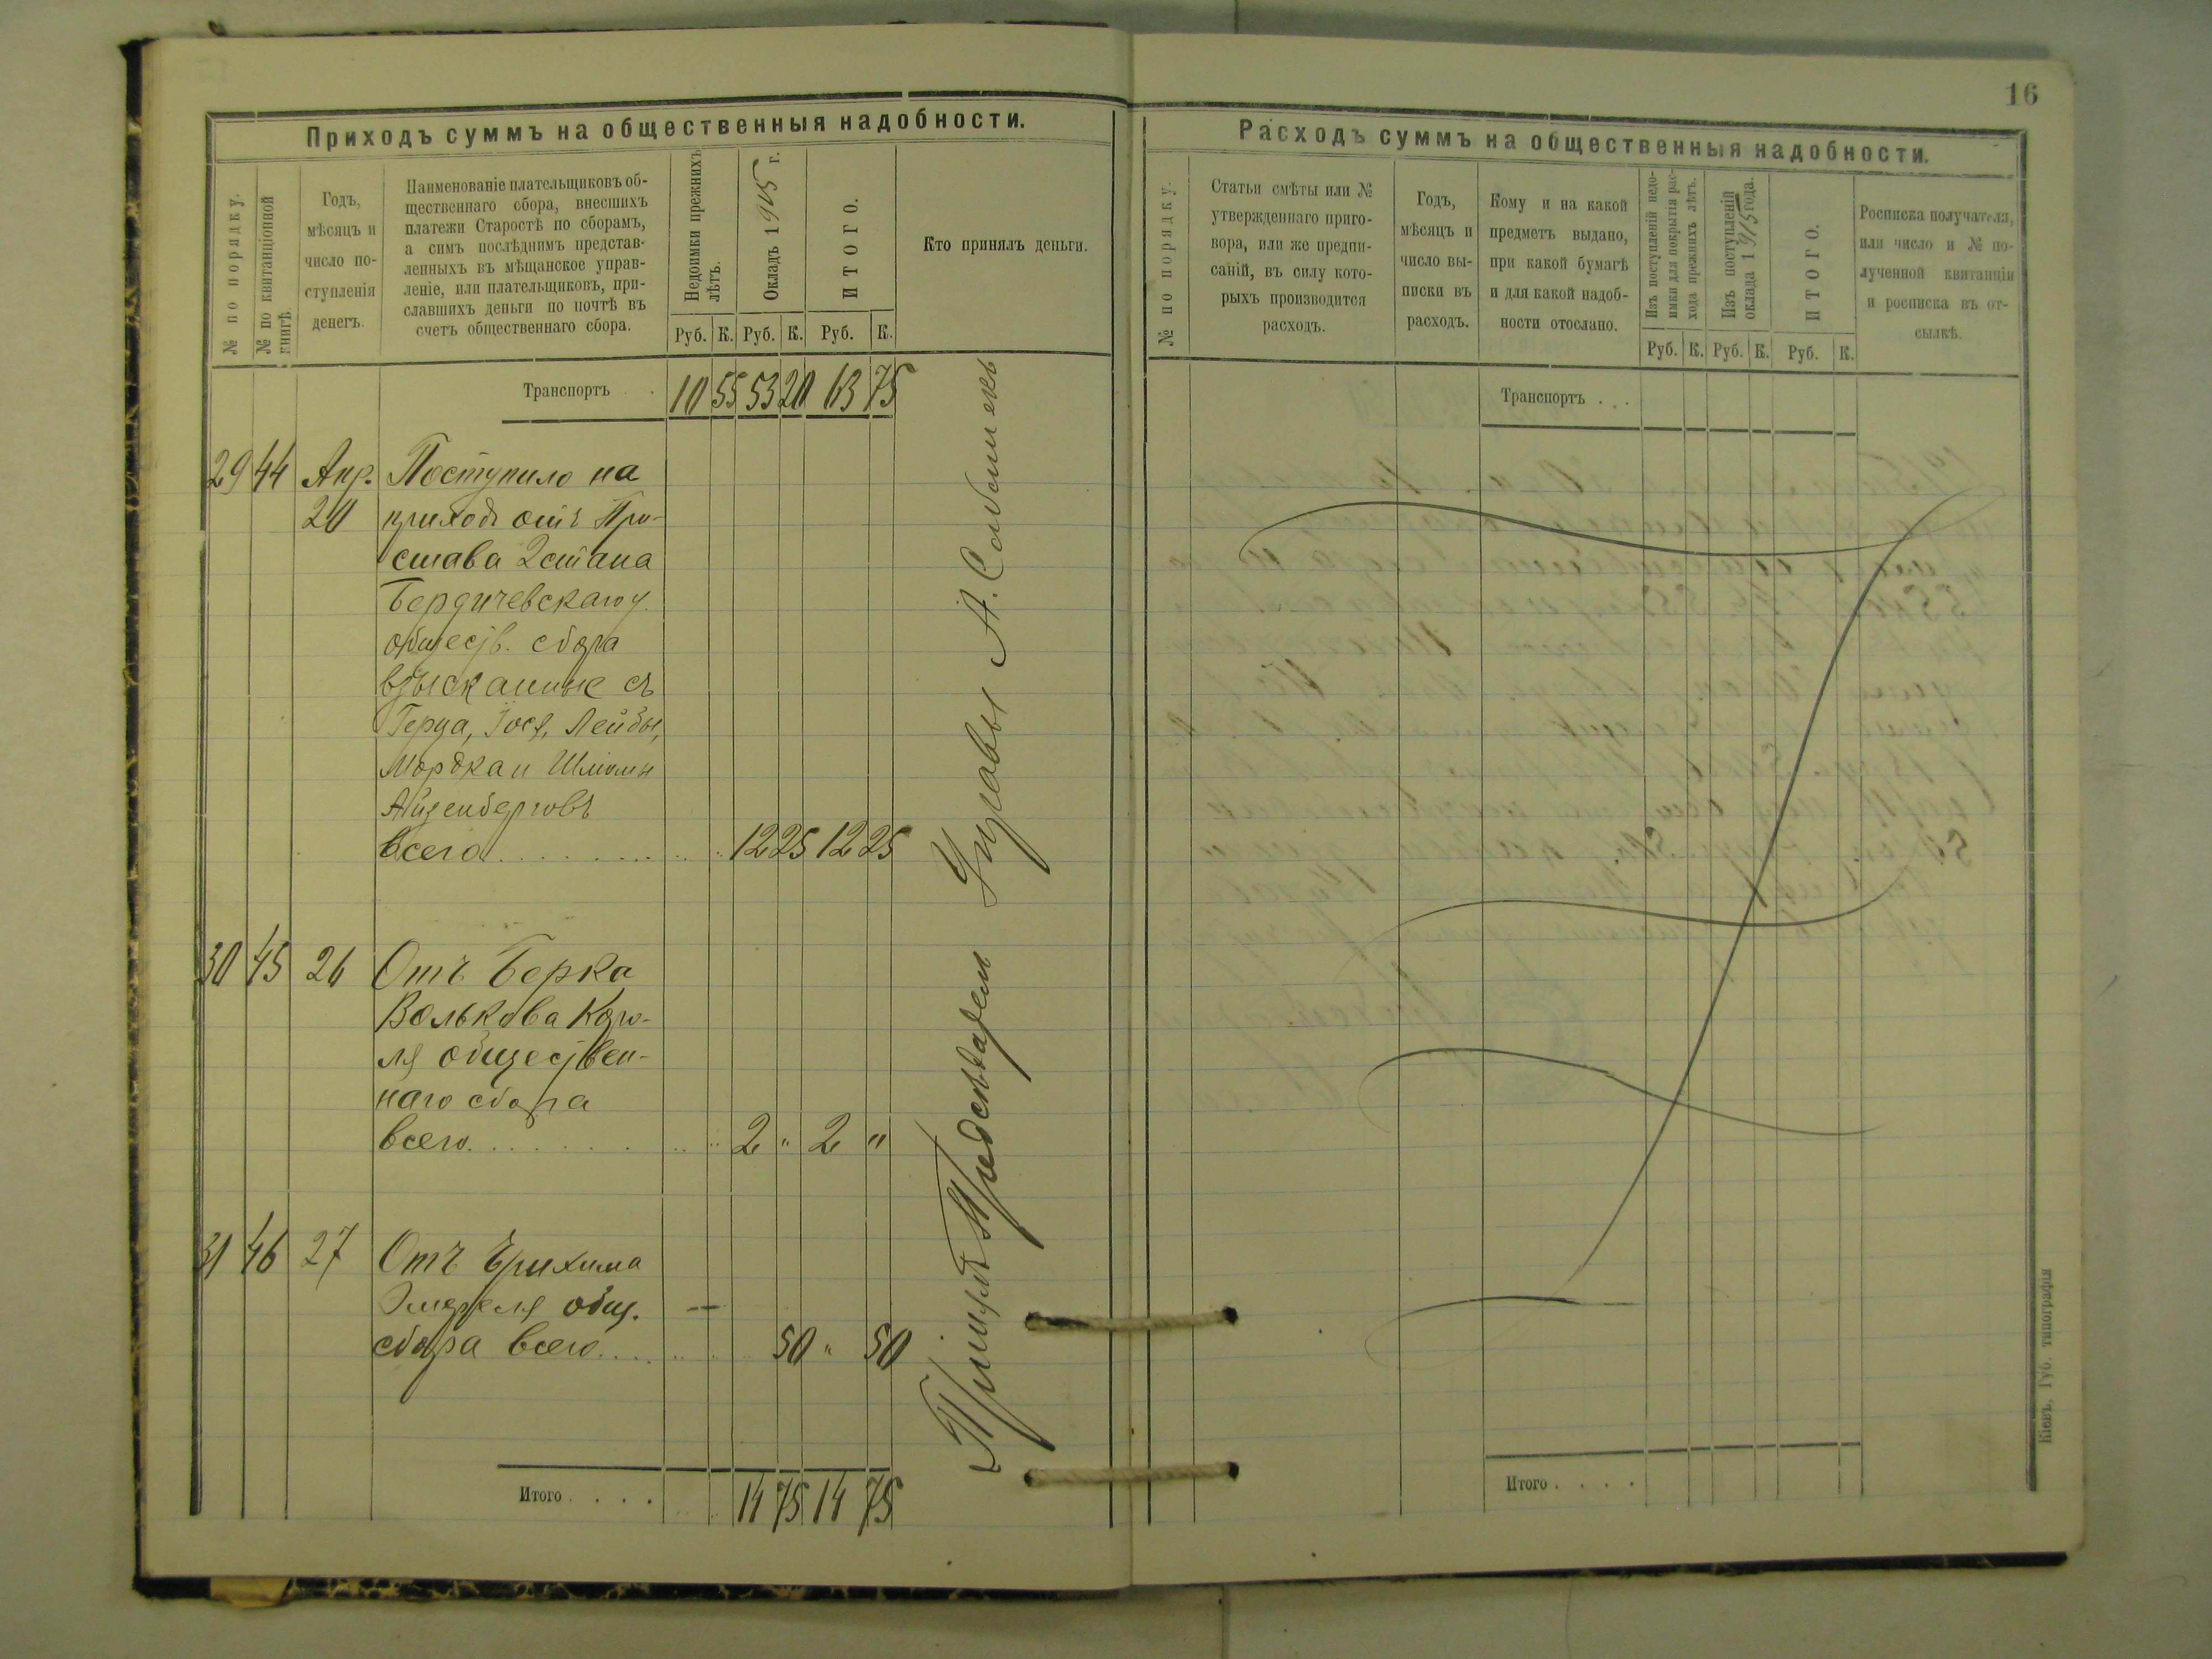 16
Приходъ суммъ на общественныя надобности.
№ по порядку.
№ по квитанціонной книгѣ.
Годъ,
мѣсяцъ и
число по-
ступленія
денегъ.
Наименованіе плательщиковъ об-
щественнаго сбора, внесшихъ
платежи Старостѣ по сборамъ,
а симъ послѣднимъ представ-
ленныхъ въ мѣщанское управ-
леніе, или плательщиковъ, при-
славшихъ деньги по почтѣ въ
счетъ общественнаго сбора.
Недоимки прежнихъ
лѣтъ.
Окладъ 1915 г.
ИТОГО.
Кто принялъ деньги.
Руб. К. Руб. К. Руб. К.
Транспортъ . . 10 55 53 20 63 75
29 44 Апр. Поступило на
20 приходъ отъ При-
става 2 стана
Бердичевскаго у.
обществ. сбора
взысканные съ
Герца, Іося, Лейбы,
Мордка и Шліомы
Айзенберговъ
всего . . . . . . . . 12 25 12 25
30 45 26 Отъ Берка
Волькова Коро-
ля обществен-
наго сбора
всего . . . . . . . . 2 " 2 "
31 46 27 Отъ
общ.
сбора всего . . . . 50 " 50
Итого . . . . 14 75 14 75
Управы А.
Расходъ суммъ на общественныя надобности.
№ по порядку.
Статьи смѣты или №
утвержденнаго приго-
вора, или же предпи-
саній, въ силу кото-
рыхъ производится
расходъ.
Годъ,
мѣсяцъ и
число вы-
писки въ
расходъ.
Кому и на какой
предметъ выдано,
при какой бумагѣ
и для какой надоб-
ности отослано.
Изъ поступленій недо-
имки для покрытія рас-
хода прежнихъ лѣтъ.
Изъ поступленій
оклада 1915 года.
ИТОГО.
Росписка получателя,
или число и № по-
лученной квитанціи
и росписка въ от-
сылкѣ.
Руб. К. Руб. К. Руб. К.
Транспортъ . . .
Итого . . . .
Кіевъ, Губ. типографія